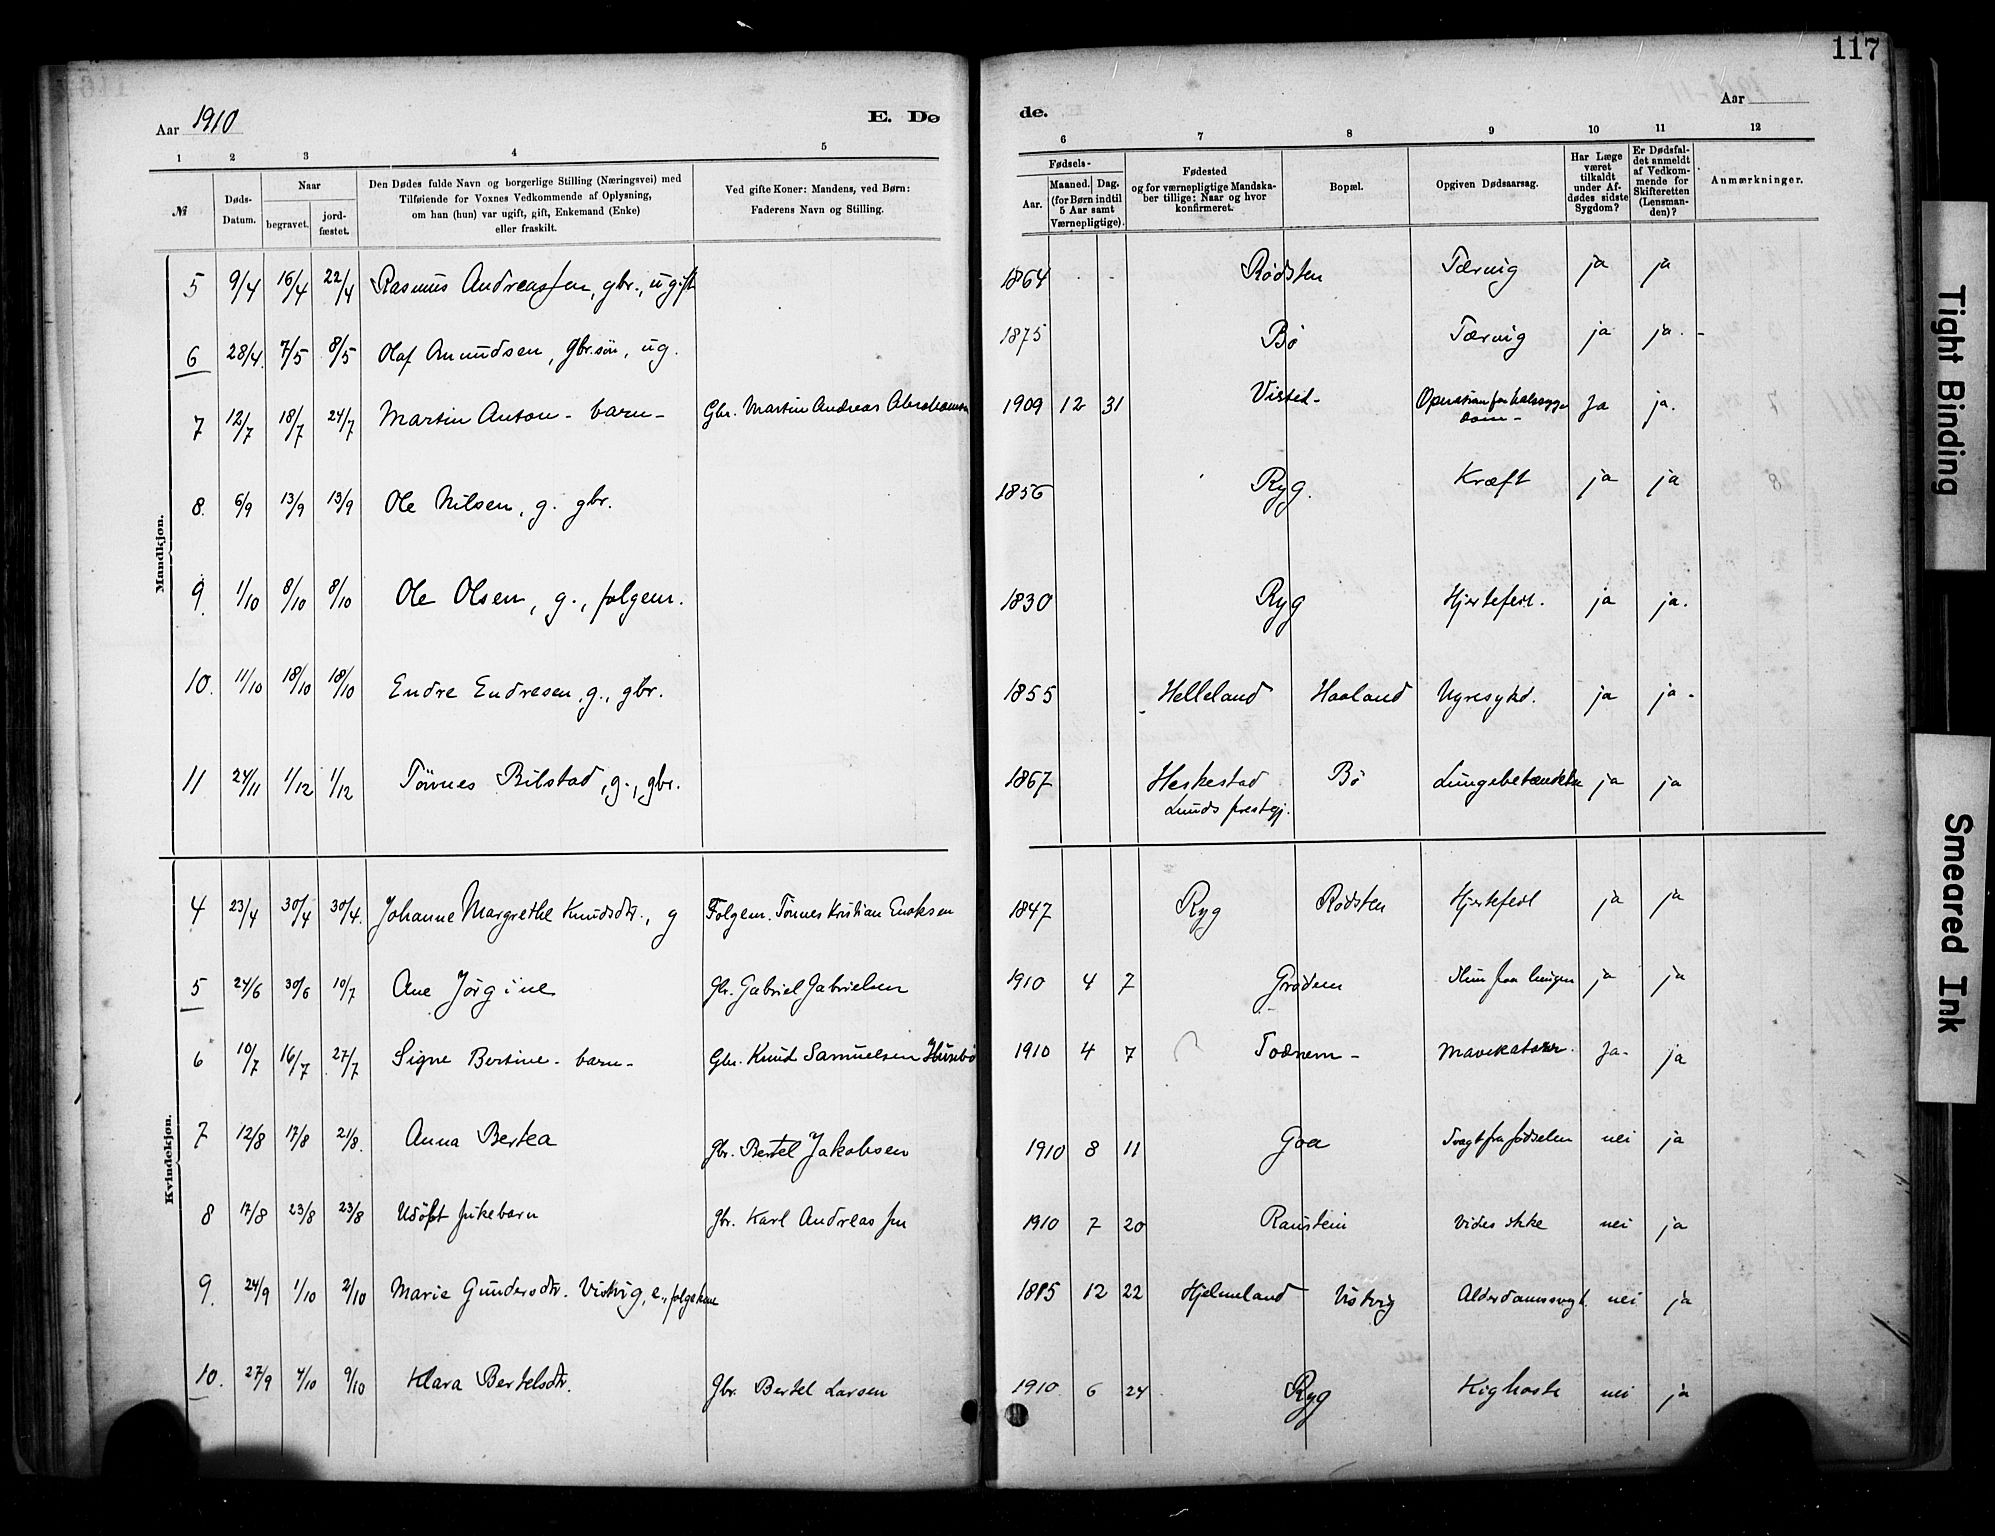 117
Aar 1910
E. Dø
de.
Aar
1 2 3 4 5
6 7 8 9 10 11 12
№
Døds-
Datum.
Naar
begravet.
jord-
fæstet.
Den Dødes fulde Navn og borgerlige Stilling (Næringsvei) med
Tilføiende for Voxnes Vedkommende af Oplysning,
om han (hun) var ugift, gift, Enkemand (Enke)
eller fraskilt.
Ved gifte Koner: Mandens, ved Børn:
Faderens Navn og Stilling.
Fødsels-
Aar.
Maaned. Dag.
(for Børn indtil
5 Aar samt
Værnepligtige).
Fødested
og for værnepligtige Mandska-
ber tillige: Naar og hvor
konfirmeret.
Bopæl.
Opgiven Dødsaarsag.
Har Læge
været
tilkaldt
under Af-
dødes sidste
Sygdom?
Er Dødsfal-
det anmeldt
af Vedkom-
mende for
Skifteretten
(Lensman-
den)?
Anmærkninger.
Mandkjøn.
5 9/4 16/4 22/4 Rasmus Andreassen, gbr., ugift 1864 Rødsten Tæring ja ja
6 28/4 7/5 8/5 Olaf Amundsen, gbr.søn, ug. 1875 Bø Tæring ja ja.
7 12/7 18/7 24/7 Martin Anton - barn - Gbr. Martin Andreas Abrahamsen 1909 12 31 Visted - Operation for halssyge- Ja ja.
dom -
8. 6/9 13/9 13/9 Ole Nilsen, g. gbr. 1856 Ryg. Kræft ja ja
9. 1/10 8/10 8/10 Ole Olsen, g., folgem. 1830 Ryg Hjertefeil. ja ja.
10. 11/10 18/10 18/10 Endre Endresen, g., gbr. 1855 Helleland Haaland Nyresykd. ja ja -
11 24/11 1/12 1/12 Tønnes Bilstad, g., gbr. 1867 Heskestad Bø Lungebetændelse ja ja
Lunds prestgj.
Kvindekjøn.
4 23/4 30/4 30/4. Johanne Margrethe Knudsdtr., g Folgem. Tønnes Kristian Enoksen 1847 Ryg Rødsten Hjertefeil ja ja
5 24/6 30/6 10/7 Ane Jørgine Gbr. Gabriel Gabrielsen 1910 4 7 Grødem Slim paa lungen ja ja
6 10/7 16/7 27/7 Signe Bertine - barn - Gbr. Knud Samuelsen Husebø 1910 4 7 Todnem - Mavekatarr. Ja - ja
7 12/8 17/8 21/8. Anna Bertea Gbr. Bertel Jakobsen 1910 8 11 Goa Svagt fra fødselen nei ja
8 17/8 23/8 23/8 Udøpt pikebarn Gbr. Karl Andreassen 1910 7 20 Raustein Vides ikke nei ja
9. 24/9 1/10 2/10 Marie Gundersdtr. Vistvig, e., folgekone 1815 12 22 Hjelmeland Vistvig Alderdomssvagh. nei ja
10. 27/9 4/10 9/10 Klara Bertelsdtr. Gbr. Bertel Larsen 1910 6 24 Ryg Kighoste nei ja
Tight Binding
Smeared Ink